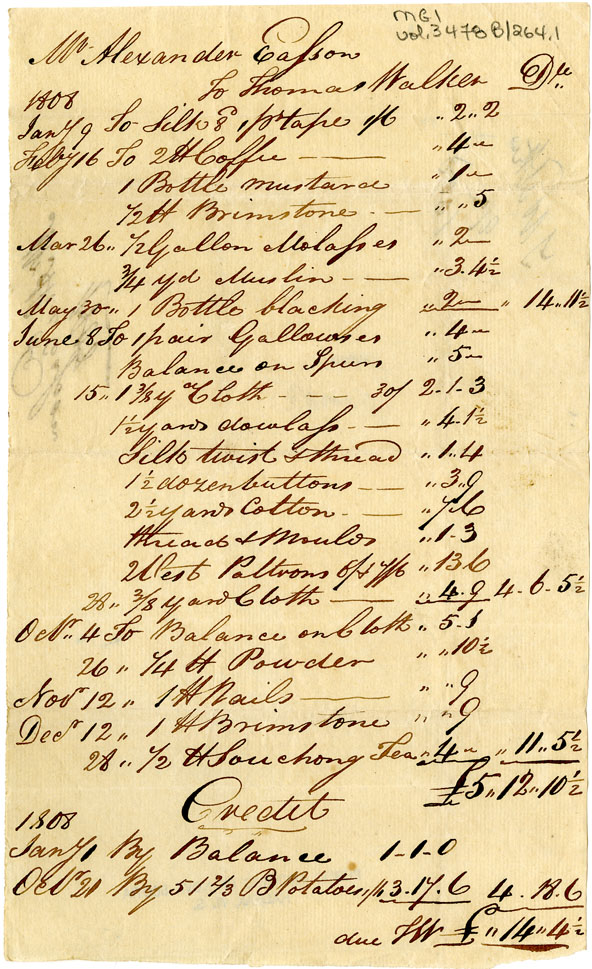 MG1
vol. 3478 B/264.1
Mr Alexander Easson
To Thomas Walker Dr
1808
Jany 9 To Silk 8d 1 pr tape 1/6 „ 2 „ 2
Feby 16 To 2 lb Coffee — „ 4 „
1 Bottle mustard „ 1 „
1/2 lb Brimstone — „ „ 5
Mar 26 „ 1/2 Gallon Molasses „ 2 —
3/4 yd Muslin — „ 3. 4 1/2
May 30 „ 1 Bottle blacking „ 2 — „ 14 „ 11 1/2
June 8 To 1 pair Gallowses „ 4 „
Balance on Spurs „ 5 „
15 „ 1 3/8 yd Cloth - - - 30/ 2 - 1 - 3
1 1/2 yards dowlass — „ 4 - 1 1/2
Silk twist & thread „ 1 „ 4
1 1/2 dozen buttons — „ 3 „ 9
2 1/2 yards Cotton — „ 7 - 6
thread & Moulds „ 1 - 3
2 Vest Pattrons 6/ & 7/6 „ 13 6
28 „ 3/8 yard Cloth — „ 4 - 9 4 - 6 - 5 1/2
Octr 4 To Balance on Cloth „ 5 - 1
26 „ 1/4 lb Powder „ „ 10 1/2
Novr 12 „ 1 lb Nails — „ „ 9
Decr 12 „ 1 lb Brimstone „ „ 9
28 „ 1/2 lb Souchong Tea „ 4 „ „ 11 „ 5 1/2
£5 „ 12 „ 10 1/2
Credit
1808
Jany 1 By Balance 1 - 1 - 0
Octr 21 By 51 2/3 B Potatoes 1/6 3. 17. 6 4 . 18 . 6
due TW £ „ 14 „ 4 1/2